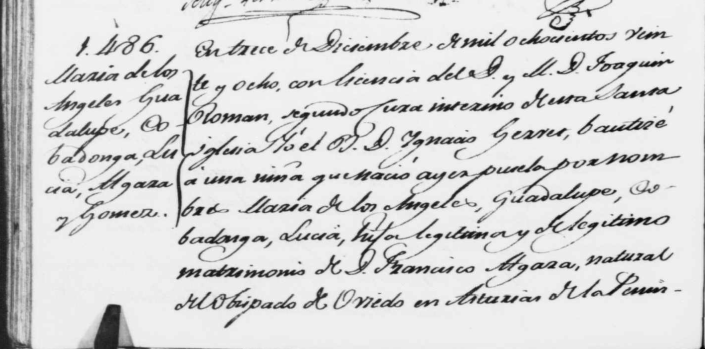 1.486.
Maria de los
Angeles Gua
dalupe, Co-
badonga, Lu
cia, Algara
y Gomez.
En trece de Diciembre de mil ochocientos vein
te y ocho, con licencia del D. y M. D. Joaquin
Roman, segundo Cura interino de esta Santa
iglesia Yo el B. D. Ygnacio bautizé
á una niña que nació ayer pusela por nom
bres Maria de los Angeles, Guadalupe, Co-
badonga, Lucia, hija legitima y de legitimo
matrimonio de D. Francisco Algara, natural
del Obispado de Oviedo en Asturias de la Penin-